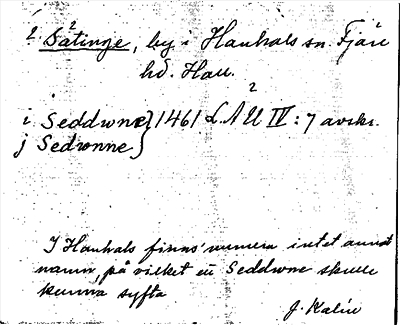 ? Såtinge, by i Hanhals sn. Fjäre
hd. Hall.
i Seddwne } 1461 L.A U IV : 7 avskr.
j Sedwnne }
I Hanhals finns numera intet annat
namn, på vilket ett Seddwne skulle
kunna syfta
J. Kalén